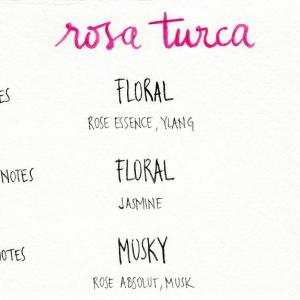 rosa turca
ES FLORAL
ROSE ESSENCE, YLANG
NOTES FLORAL
JASMINE
OTES MUSKY
ROSE ABSOLUT, MUSK